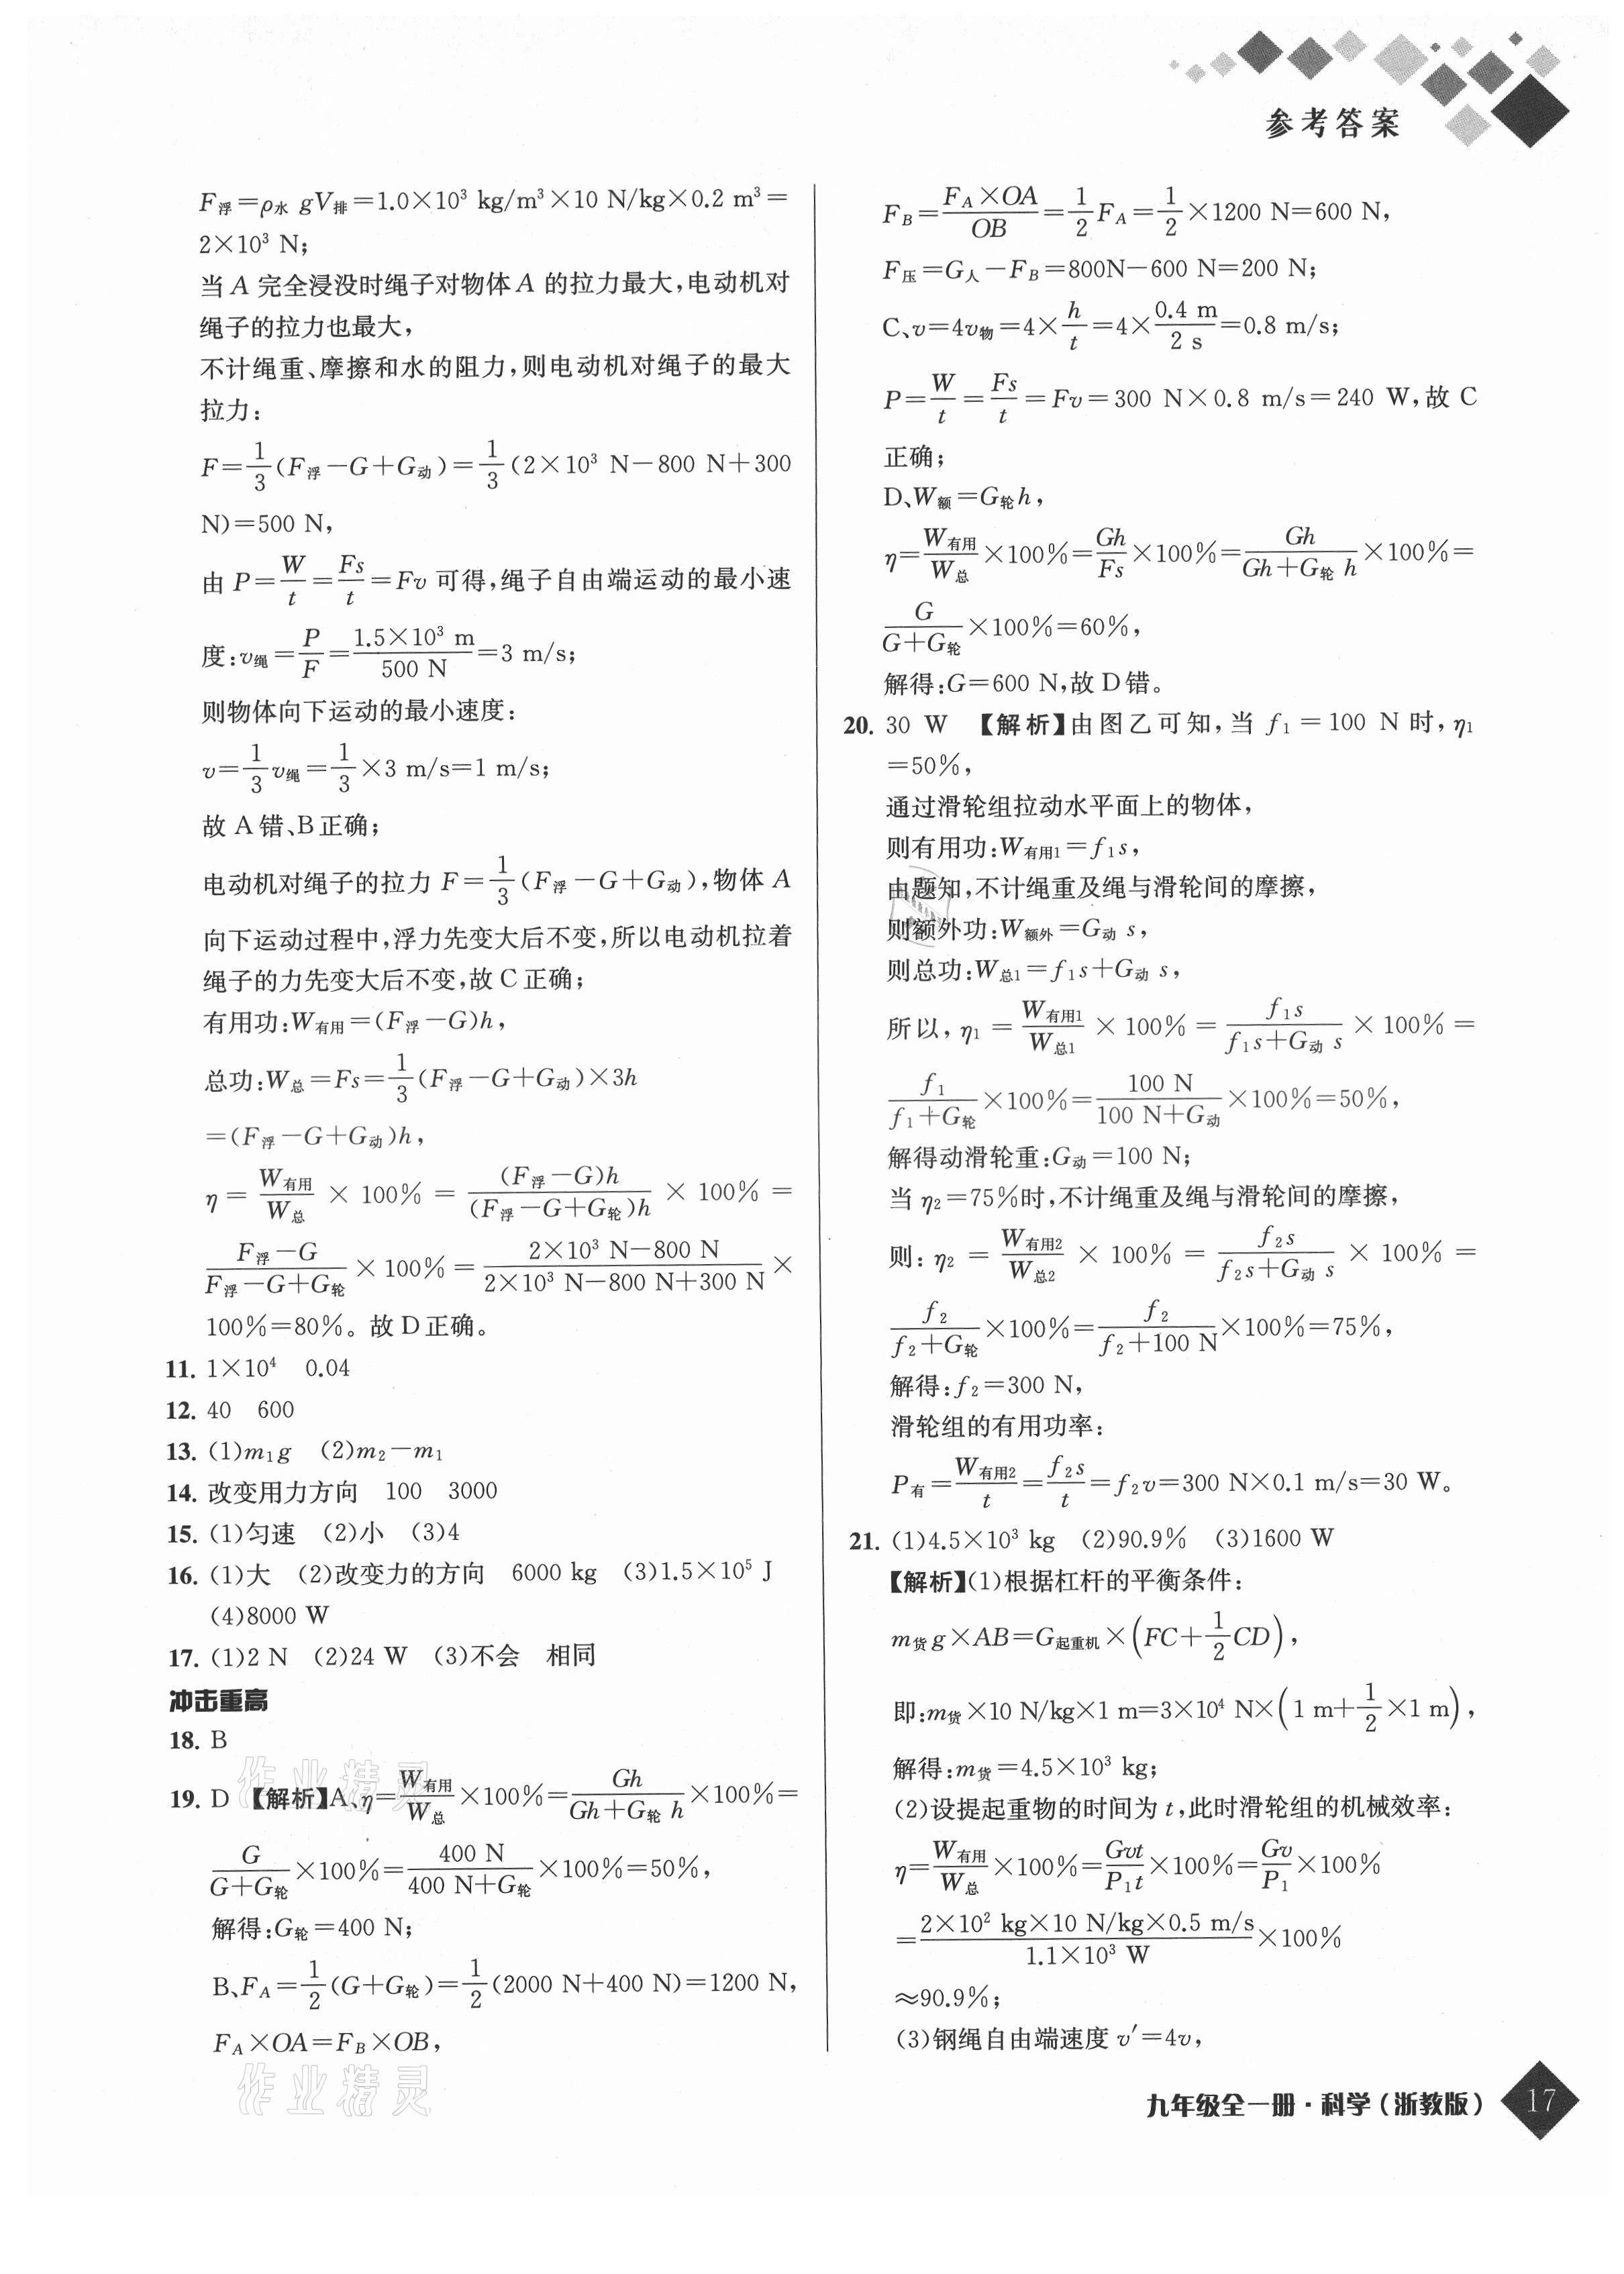 参考答案
F浮=ρ水 gV排=1.0×10³ kg/m³×10 N/kg×0.2 m³=
2×10³ N;
当 A 完全浸没时绳子对物体 A 的拉力最大,电动机对
绳子的拉力也最大,
不计绳重、摩擦和水的阻力,则电动机对绳子的最大
拉力:
F=1/3(F浮-G+G动)=1/3(2×10³ N-800 N+300
N)=500 N,
由 P=W/t=Fs/t=Fv 可得,绳子自由端运动的最小速
度:v绳=P/F=1.5×10³ m/500 N=3 m/s;
则物体向下运动的最小速度:
v=1/3v绳=1/3×3 m/s=1 m/s;
故 A 错、B 正确;
电动机对绳子的拉力 F=1/3(F浮-G+G动),物体 A
向下运动过程中,浮力先变大后不变,所以电动机拉着
绳子的力先变大后不变,故 C 正确;
有用功:W有用=(F浮-G)h,
总功:W总=Fs=1/3(F浮-G+G动)×3h
=(F浮-G+G动)h,
η=W有用/W总×100%=(F浮-G)h/(F浮-G+G轮)h×100%=
F浮-G/F浮-G+G轮×100%=2×10³ N-800 N/2×10³ N-800 N+300 N×
100%=80%。故 D 正确。
11. 1×10⁴ 0.04
12. 40 600
13. (1)m₁g (2)m₂-m₁
14. 改变用力方向 100 3000
15. (1)匀速 (2)小 (3)4
16. (1)大 (2)改变力的方向 6000 kg (3)1.5×10⁵ J
(4)8000 W
17. (1)2 N (2)24 W (3)不会 相同
冲击重高
18. B
19. D 【解析】A、η=W有用/W总×100%=Gh/Gh+G轮 h×100%=
G/G+G轮×100%=400 N/400 N+G轮×100%=50%,
解得:G轮=400 N;
B、F_A=1/2(G+G轮)=1/2(2000 N+400 N)=1200 N,
F_A×OA=F_B×OB,
F_B=F_A×OA/OB=1/2F_A=1/2×1200 N=600 N,
F压=G人-F_B=800N-600 N=200 N;
C、v=4v物=4×h/t=4×0.4 m/2 s=0.8 m/s;
P=W/t=Fs/t=Fv=300 N×0.8 m/s=240 W,故 C
正确;
D、W额=G轮h,
η=W有用/W总×100%=Gh/Fs×100%=Gh/Gh+G轮 h×100%=
G/G+G轮×100%=60%,
解得:G=600 N,故 D 错。
20. 30 W 【解析】由图乙可知,当 f₁=100 N 时,η₁
=50%,
通过滑轮组拉动水平面上的物体,
则有用功:W有用1=f₁s,
由题知,不计绳重及绳与滑轮间的摩擦,
则额外功:W额外=G动 s,
则总功:W总1=f₁s+G动 s,
所以,η₁=W有用1/W总1×100%=f₁s/f₁s+G动 s×100%=
f₁/f₁+G轮×100%=100 N/100 N+G动×100%=50%,
解得动滑轮重:G动=100 N;
当 η₂=75%时,不计绳重及绳与滑轮间的摩擦,
则:η₂=W有用2/W总2×100%=f₂s/f₂s+G动 s×100%=
f₂/f₂+G轮×100%=f₂/f₂+100 N×100%=75%,
解得:f₂=300 N,
滑轮组的有用功率:
P有=W有用2/t=f₂s/t=f₂v=300 N×0.1 m/s=30 W。
21. (1)4.5×10³ kg (2)90.9% (3)1600 W
【解析】(1)根据杠杆的平衡条件:
m货g×AB=G起重机×(FC+1/2CD),
即:m货×10 N/kg×1 m=3×10⁴ N×(1 m+1/2×1 m),
解得:m货=4.5×10³ kg;
(2)设提起重物的时间为 t,此时滑轮组的机械效率:
η=W有用/W总×100%=Gvt/P₁t×100%=Gv/P₁×100%
=2×10² kg×10 N/kg×0.5 m/s/1.1×10³ W×100%
≈90.9%;
(3)钢绳自由端速度 v′=4v,
作业精灵
作业精灵
九年级全一册·科学(浙教版) 17